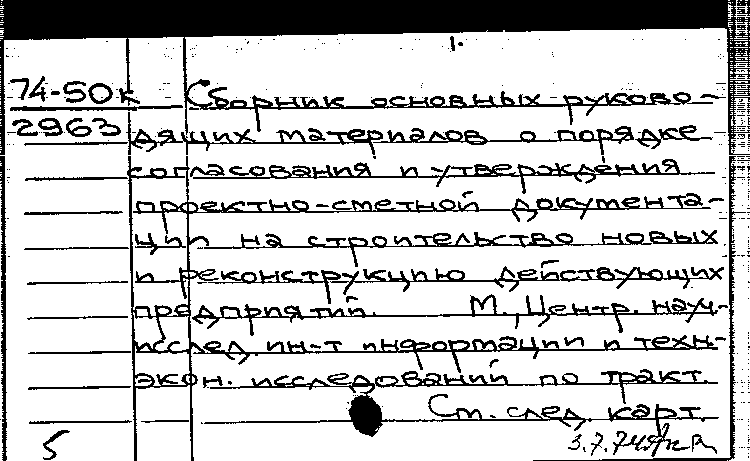 1.
74-50к Сборник основных руково-
2963 дящих материалов о порядке
согласования и утверждения
проектно-сметной документа-
ции на строительство новых
и реконструкцию действующих
предприятий. М., Центр. науч-
исслед. ин-т информации и техн-
экон. исследований по тракт.
См. след. карт.
5 3.7.74